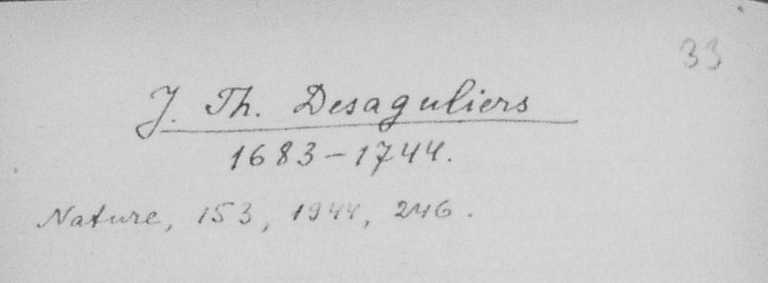 33
J. Th. Desaguliers
1683-1744.
Nature, 153, 1944, 246.